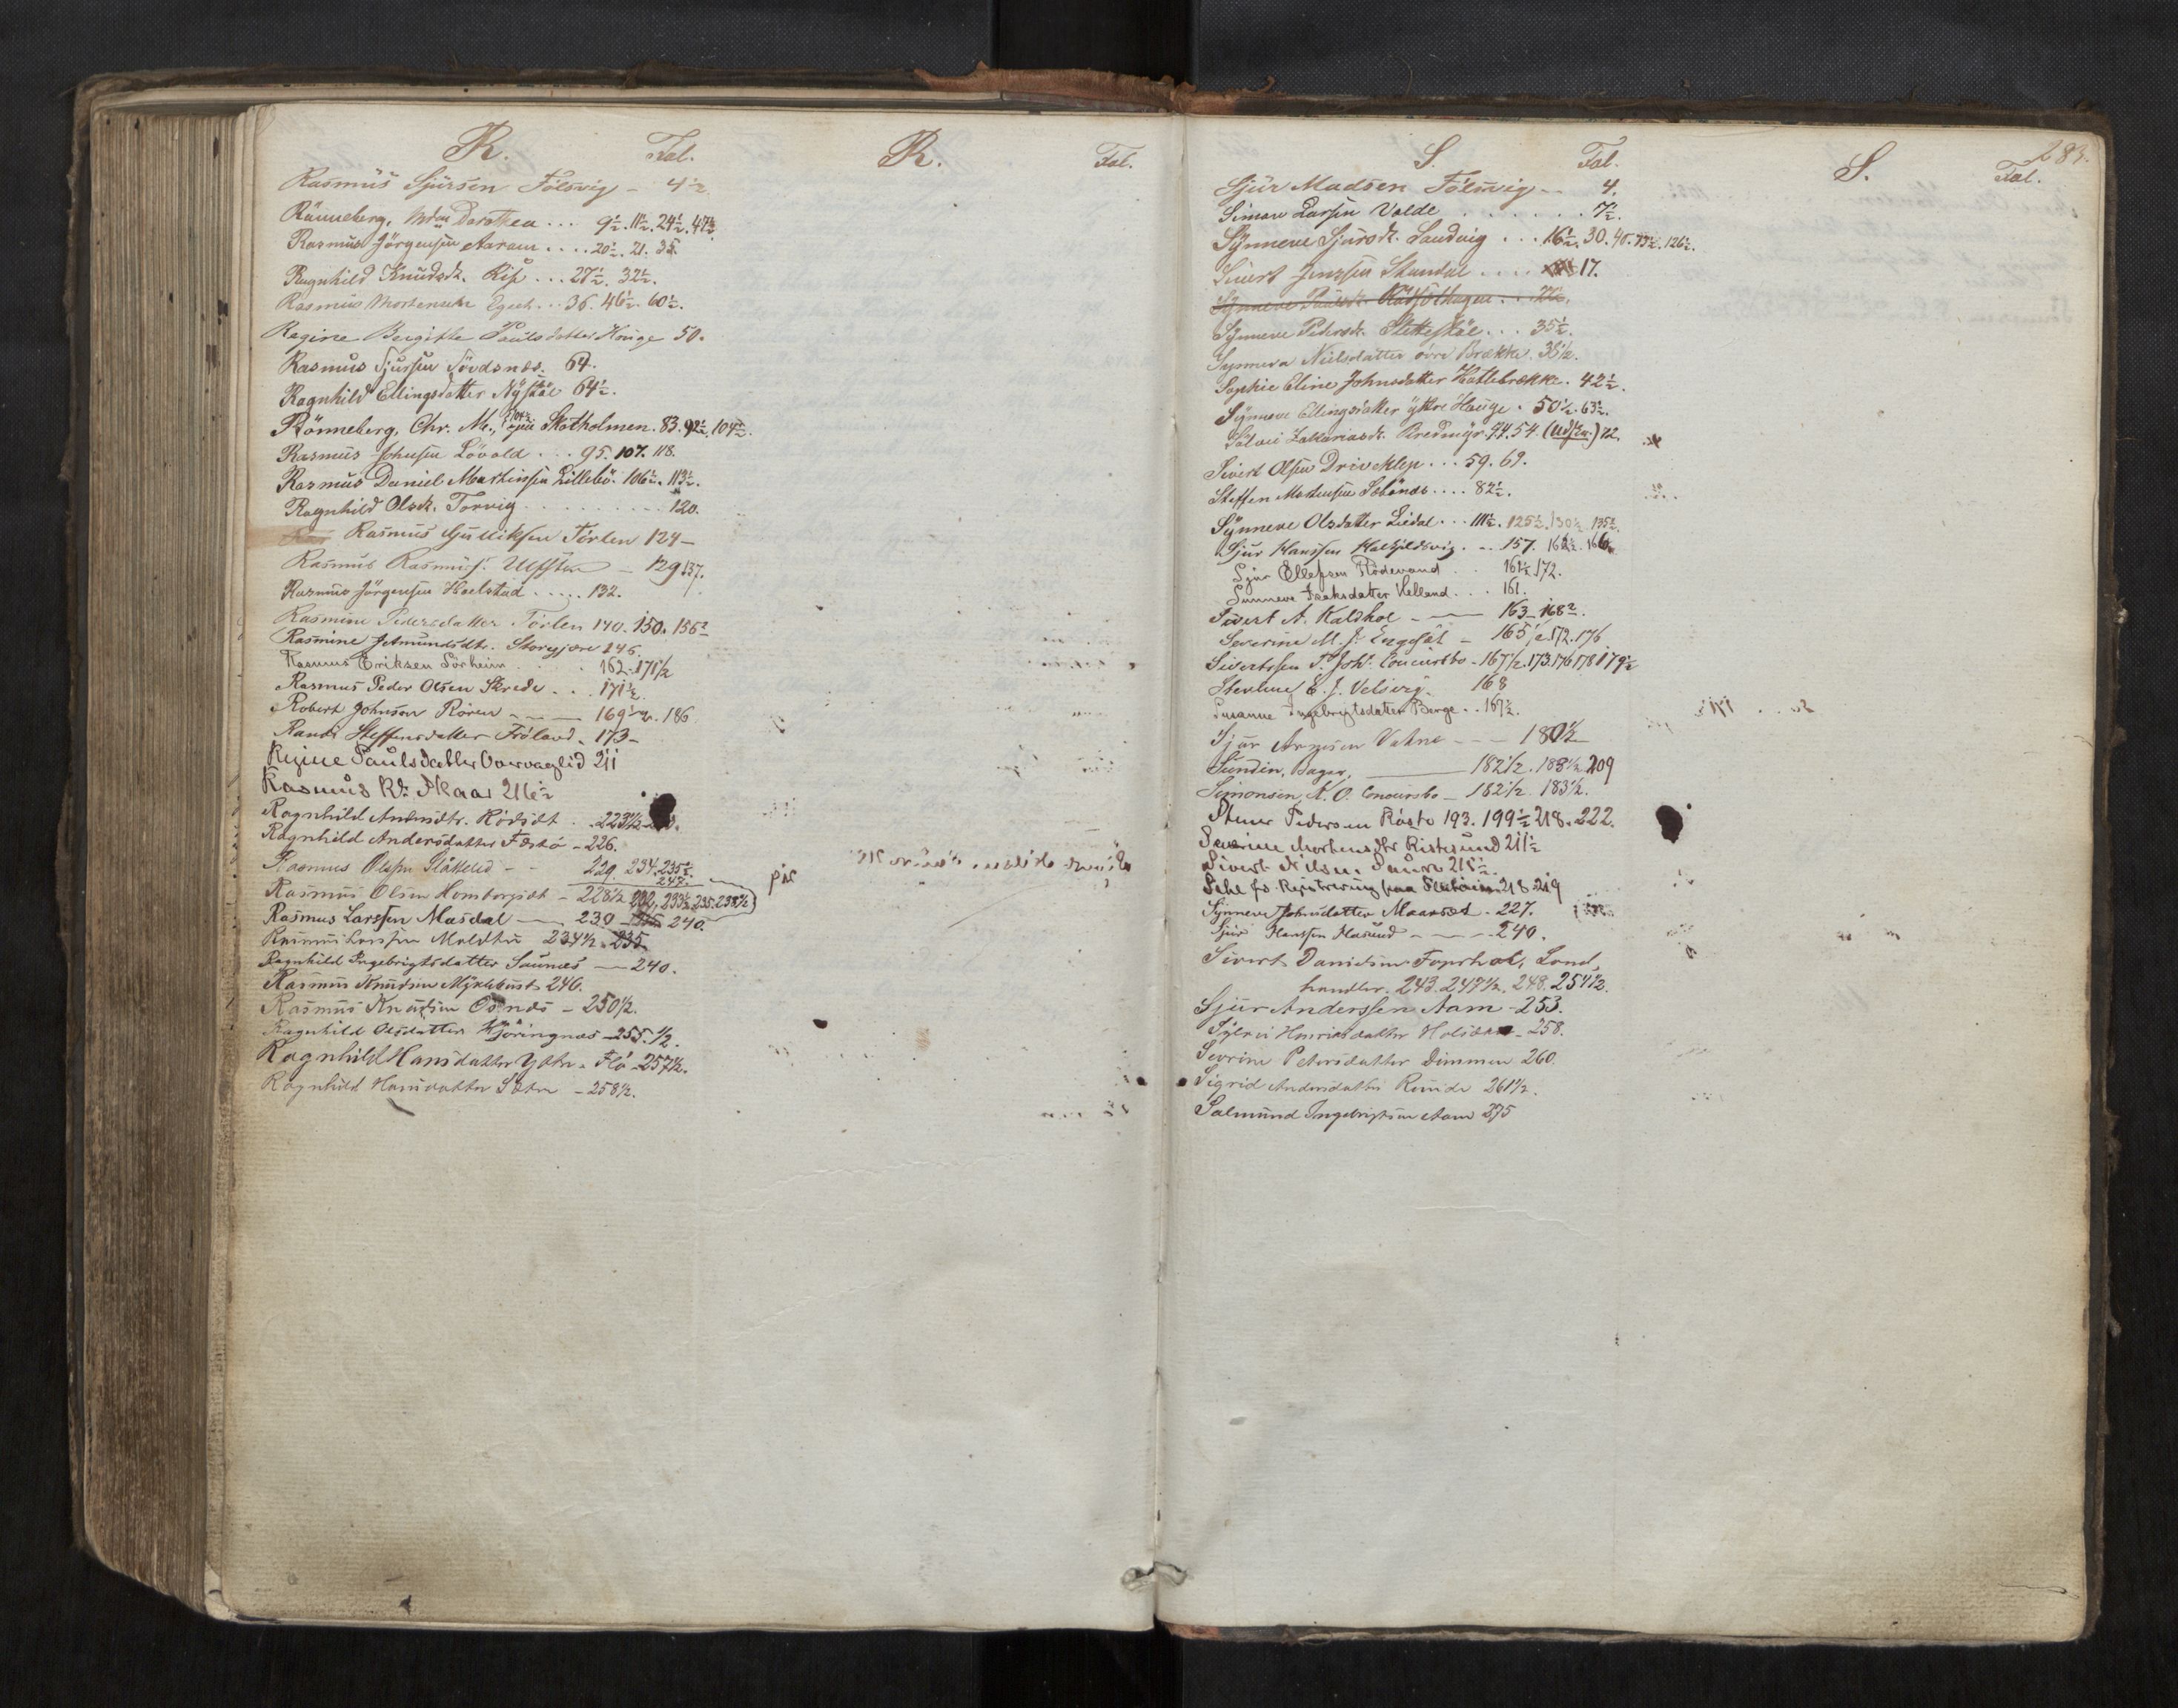 R. Fol. R. Fol.
Rasmus Sjursen Fölsvig - 4½.
Rönneberg, Mdm Dorothea ... 9½. 11½. 24½. 47½.
Rasmus Jörgensen Aaram .... 20½. 21. 35.
Ragnhild Knudsdt. Riis ... 27½. 32½.
Rasmus Mortensen Egset .. 36. 46½. 60½.
Regine Bergitte Paulsdatter Hauge 50.
Rasmus Sjursen Sövdsnæs. 64.
Ragnhild Ellingsdatter Nÿstöl 64½.
Rönneberg, Chr. M., Skotholmen. 83. 92½. 104½.
Rasmus Johnsen Lövold ... 95. 107. 118.
Rasmus Daniel Martinssen Lillebö. 106½. 113½.
Ragnhild Olsdt. Torvig ......... 120.
Rasmus Gulliksen Förlen 124 -
Rasmus Rasmuss. Ulfsten - 129. 137.
Rasmus Jörgensen Hoelstad ..... 132.
Rasmine Pedersdatter Förlen 140. 150. 156½
Rasmine Amundsdtr. Storegjære 146.
Rasmus Eriksen Sörheim . . . 162. 171½
Rasmus Peder Olsen Skrede . . . 171½.
Robert Johnson Rören - - - 169½. 186
Randi Steffensdatter Fröland. 173 -
Regine Paulsdatter Overvaglid 211
Rasmus Rs. Skaar 216½
Ragnhild Amundtr. Rödsdt . . 223½
Ragnhild Andersdatter Festö - 226.
Rasmus Olsen Slåttelid - - 229. 234. 235½.
247.
Rasmus Olsen Homborgsdt - 228½ 232, 233½. 235. 238½
Rasmus Larssen Masdal - 230 - 240.
Rasmus Larssen Moldtu 234½. 235
Ragnhild Ingebrigtsdatter Saunæs - 240.
Rasmus Knudsen Mÿklebust 246.
Rasmus Knutsen Osnes - 250½.
Ragnhild Olsdatter Kjöringnæs - 255.½.
Ragnhild Hansdatter Ytre-Flö - 257½.
Ragnhild Hansdatter Sætre - 258½.
283.
S. Fol. S. Fol.
Sjur Madsen Fölsvig - 4.
Simon Larsen Volde . . . . . . . 7½.
Sÿnneve Sjursdt. Landvig ... 16½. 30. 40. 73½. 126½.
Sivert Jenssen Standal .... 17.
Sÿnneve Pedersdt. Slettestöl ... 35½.
Synneva Nielsdatter övre Brække. 38½.
Sophie Eline Johnsdatter Hatlebrække. 42½.
Sÿnneve Ellingsdatter ÿttre Hauge. 50½. 63½.
Solvei Zakariasdt. Bredmÿr. 44. 54. (Udskr.) 72.
Sivert Olsen Driveklep ... 59. 69.
Steffen Mortensen Sebönes .... 82½.
Sÿnneve Olsdatter Liedal ... 111½. 125½. 130½. 135½.
Sjur Hanssen Halkjeldsvig. .. 157. 162½. 166.
Sjur Ellefsen Rödevand . . 161½. 172.
Sunneve Isaksdatter Helland . . . 161.
Sivert A. Kaldhol - 163 - 168½.
Severine M. J. Engesæt - 165½. 172. 176
Sivertssen P. Joh. Concursbo - 167½. 173. 176. 178. 179½
Sterline E. J. Velsvig. 168
Susanne Ingebrigtsdatter Berge . . 169½.
Sjur Arnesen Vatne - - - 180½
Sundin, Bager, - 182½. 183½. 209
Simonsen, K. O. Concursbo - 182½. 183½.
Stener Pedersen Röste 193. 199½ 218. 222.
Severine Mortensdtr Ristesund 211½
Sivert Nilsen. Saunes 215½.
Sehe fo. Registrering paa 218. 219
Sÿnneve Johnsdatter Maarset. 227.
Sjur Hanssen Hasund - - - 240.
Sivert Danielsen Fagerhol, Land,
handler. 243. 247½. 248. 254½.
Sjur Anderssen Aam - 253.
Sÿlvi Henriksdatter - 258.
Sevrine Petersdatter Dimmen 260.
Sigrid Andersdatter Runde 261½.
Salmund Ingebrigtsen Aam 275